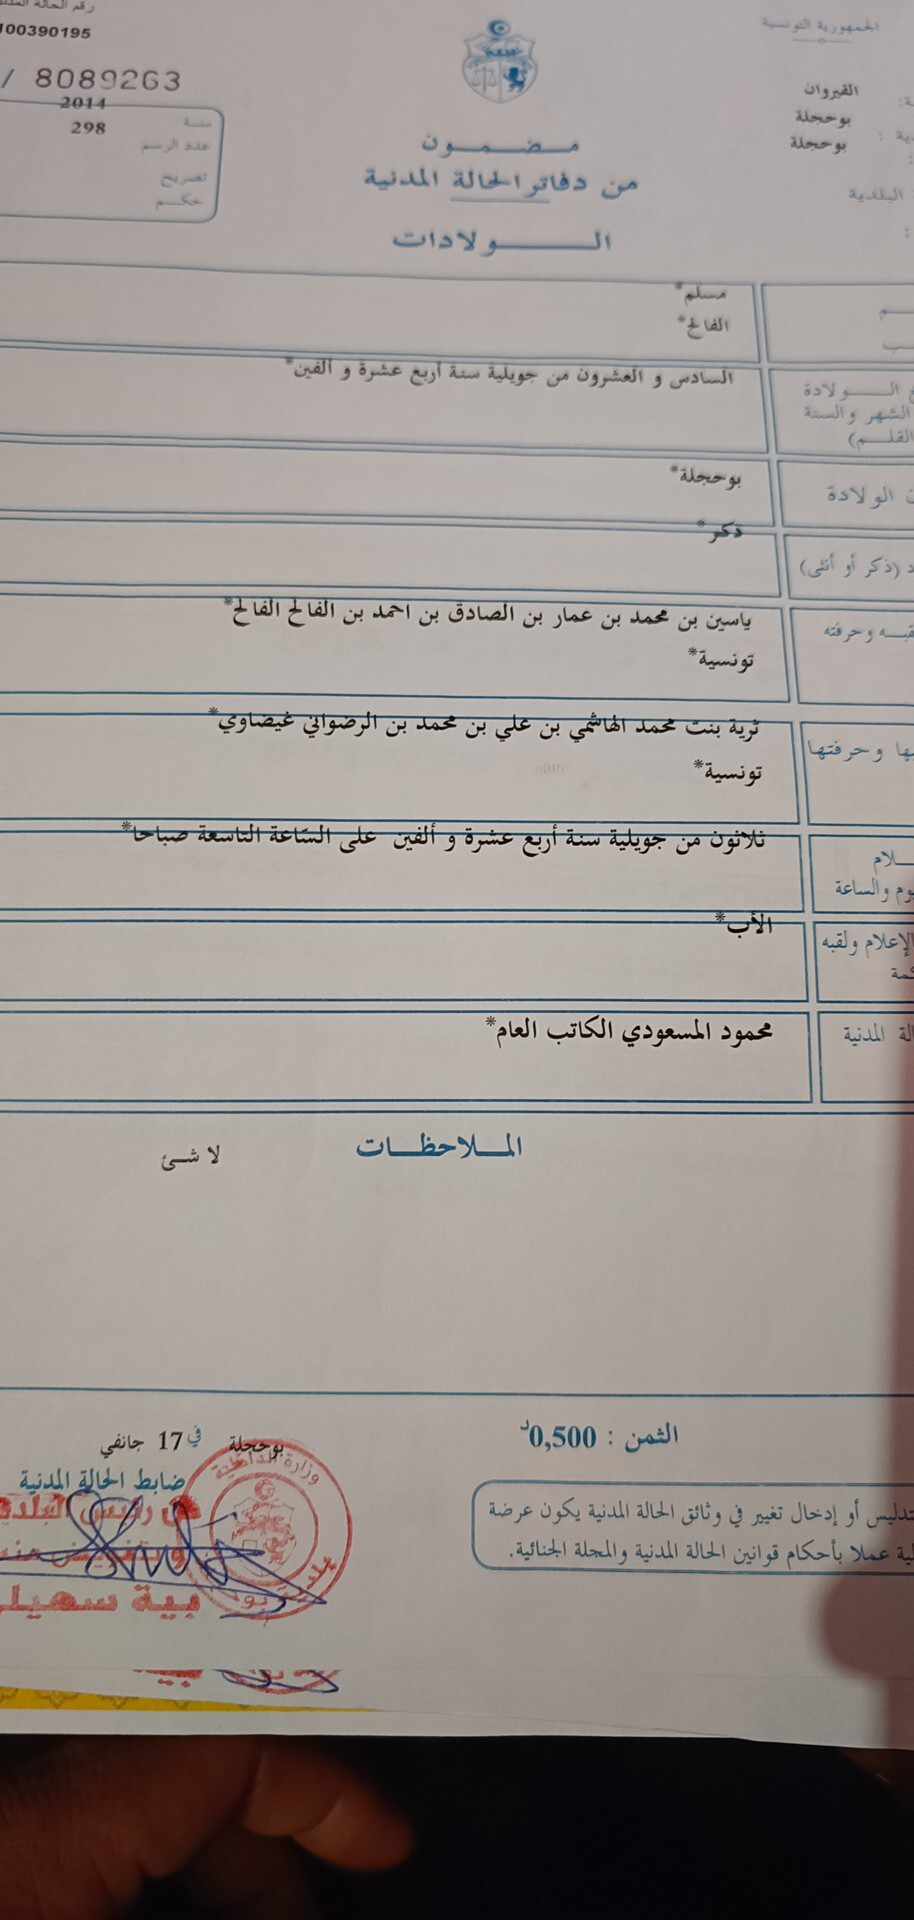 رقم الحالة المدنية
100390195
/ 8089263
الجمهورية التونسية
القيروان
بوحجلة
بوحجلة
البلدية
سنة 2014
عدد الرسم 298
تصريح
حكم
مضمون
من دفاتر الحالة المدنية
الولادات
مسلم*
الفالح*
الولادة
الشهر والسنة
القلم)
السادس و العشرون من جويلية سنة أربع عشرة و ألفين*
الولادة
بوحجلة*
(ذكر أو أنثى)
ذكر*
وحرفته
ياسين بن محمد بن عمار بن الصادق بن احمد بن الفالح الفالح*
تونسية*
وحرفتها
ثرية بنت محمد الهاشمي بن علي بن محمد بن الرضواني غيضاوي*
تونسية*
والساعة
ثلاثون من جويلية سنة أربع عشرة و ألفين على السّاعة التاسعة صباحا*
الإعلام ولقبه
الأب*
المدنية
محمود المسعودي الكاتب العام*
الملاحظات
لا شئ
الثمن : 0,500د
بوحجلة في 17 جانفي
ضابط الحالة المدنية
وزارة الداخلية
عن رئيس البلدية
بية سهيل
أو إدخال تغيير في وثائق الحالة المدنية يكون عرضة
عملا بأحكام قوانين الحالة المدنية والمجلة الجنائية.